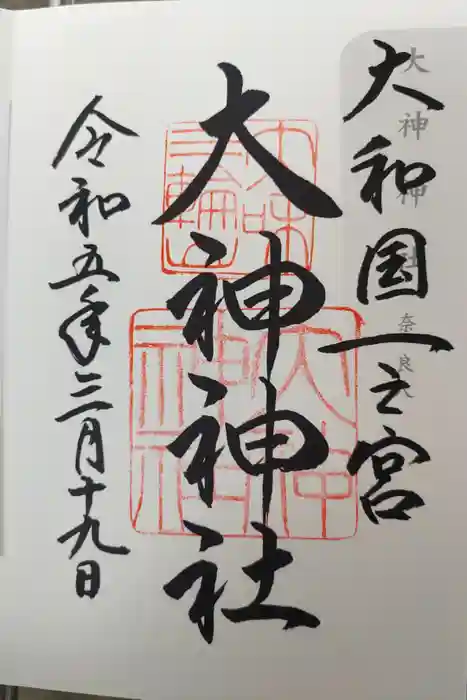 大和国一之宮
大神神社
奈良
大神神社
令和五年三月十九日
三輪
大神神社